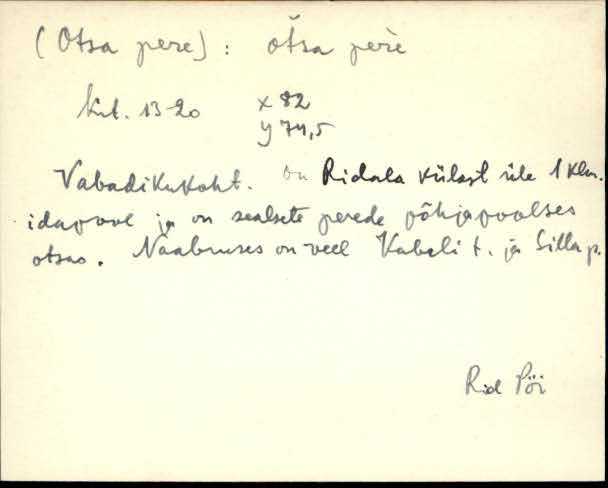 (Otsa pere) : oťsa pere
krt. 13-20 x 82
y 74,5
Vabadikukoht. on Ridala külast üle 1 klm.
idapool ja on sealsete perede põhjapoolses
otsas. Naabruses on veel Kabeli t. ja Silla p.
Rid Pöi